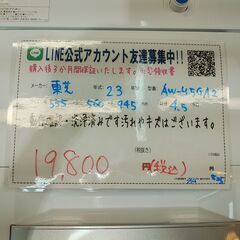 LINE公式アカウント友達募集中!!
購入後3か月間保証いたします。
メーカー 東芝 年式 23 型番 AW-45GA2
555 560 945 4.5
洗浄済みです汚れやキズはございます。
(税抜き)
19,800 円(税込)